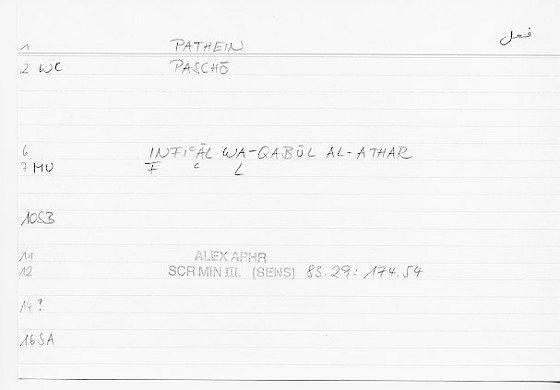 فعل
1 PATHEIN
2 WC PASCHŌ
6 INFIᶜĀL WA-QABŪL AL-ATHAR
7 MU F C L
10SB
11 ALEX APHR
12 SCR MIN III. [SENS] 83.29: 174.54
14 ?
16SA